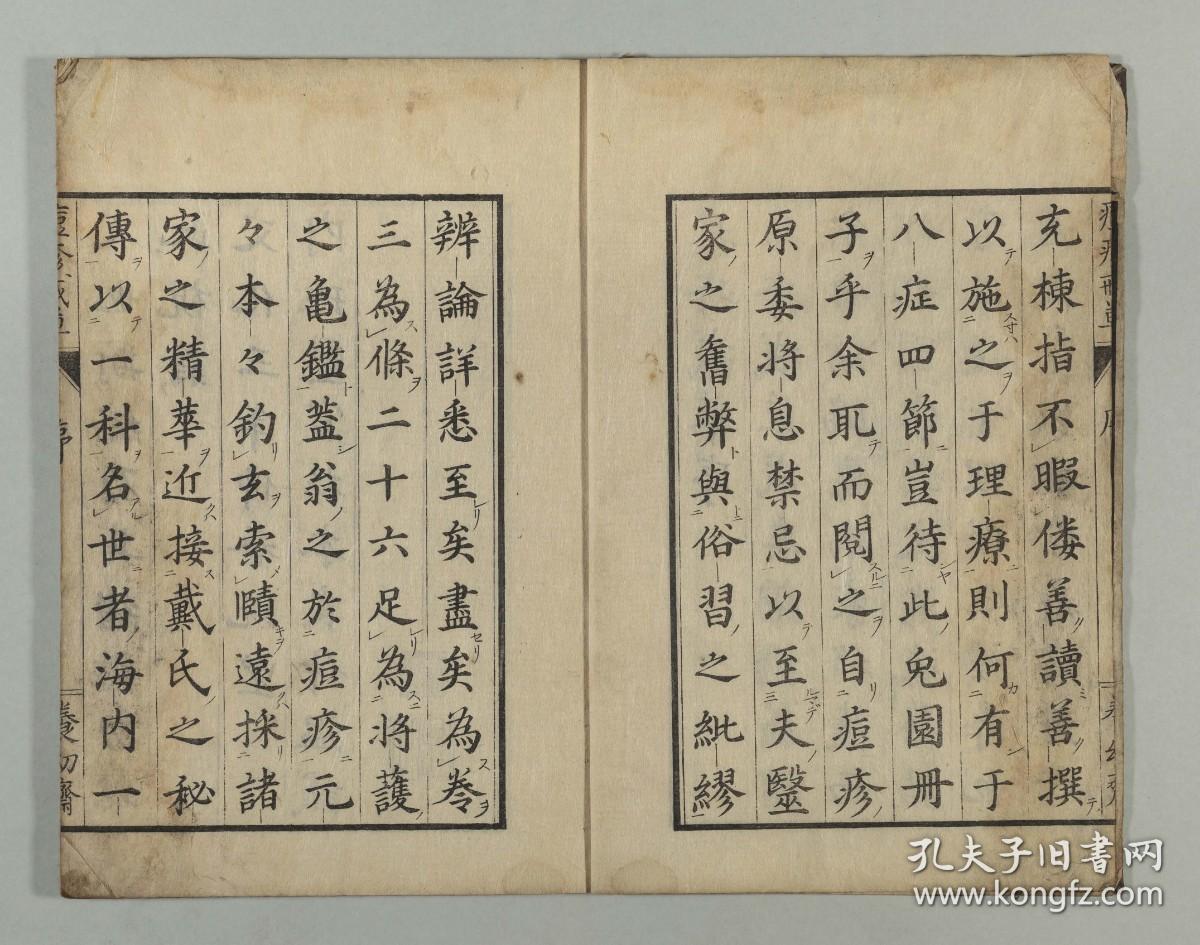 充棟指不暇偻善讀善撰
以施之于理療則何有于
八症四節豈待此兔園冊
子乎余耴而閲之自痘疹
原委将息禁忌以至夫毉
家之舊弊與俗習之紕繆
辨論詳悉至矣盡矣為卷
三為條二十六足為将護
之亀鑑葢翁之於痘疹元
々本々釣玄索賾遠採諸
家之精華近接戴氏之秘
傳以一科名世者海内一
序
養幼齋
孔夫子旧书网
www.kongfz.com